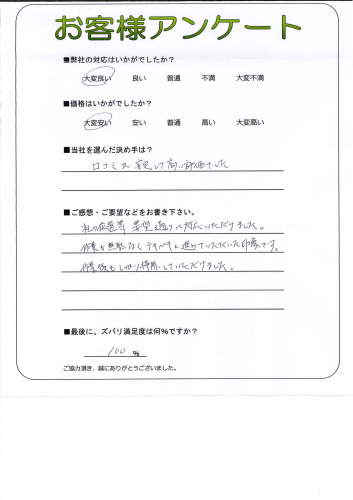 お客様アンケート
■弊社の対応はいかがでしたか？
大変良い 良い 普通 不満 大変不満
■価格はいかがでしたか？
大変安い 安い 普通 高い 大変高い
■当社を選んだ決め手は？
口コミが安定して高い評価でした
■ご感想・ご要望などをお書き下さい。
等 要望通りに対応いただけました。
作業も無駄なくテキパキと進めていただいた印象です。
作業後もしっかり掃除していただけました。
■最後に、ズバリ満足度は何％ですか？
100 %
ご協力頂き、誠にありがとうございました。